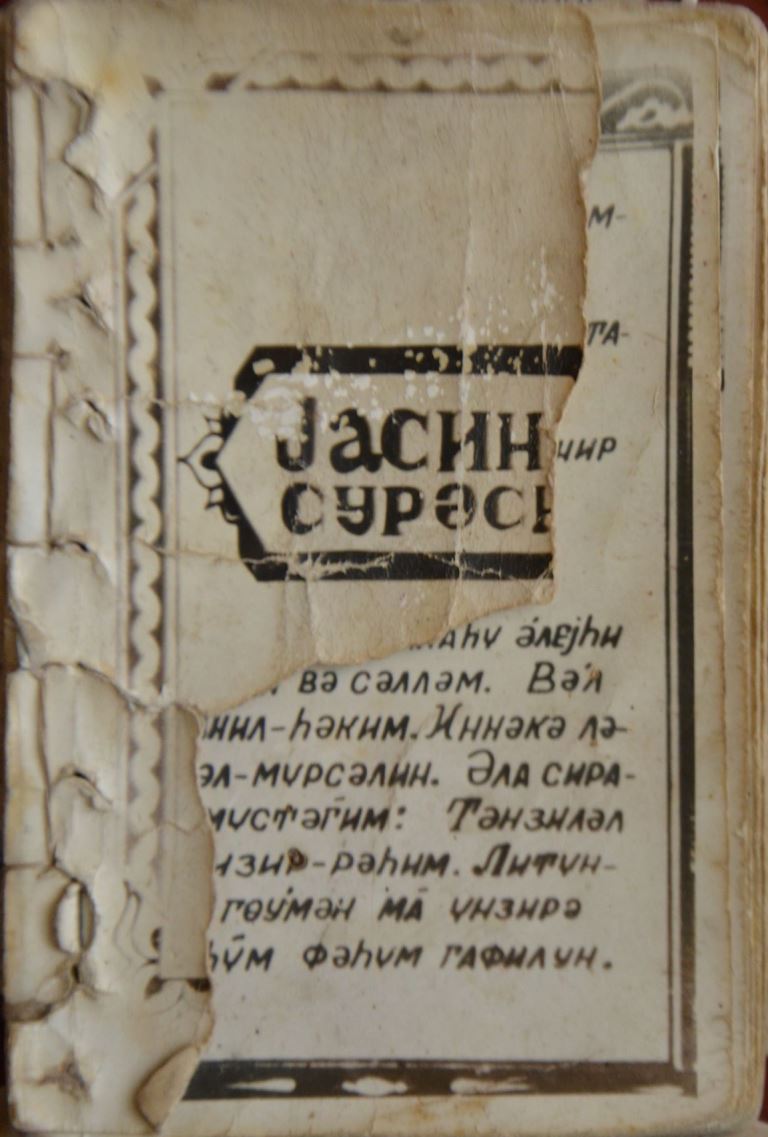 ЈАСИН
СУРӘС
М-
ТА-
ҺУ ӘЛЕЈҺИ
ВӘ СӘЛЛӘМ. ВӘЛ
НИЛ-ҺӘКИМ. ИННӘКӘ ЛӘ-
ӘЛ-МУРСӘЛИН. ӘЛА СИРА-
МУСТӘГИМ: ТӘНЗИЛӘЛ
ИЗИР-РӘҺИМ. ЛИТУН-
ГӨУМӘН МА УНЗИРӘ
ҺУМ ФӘҺУМ ГАФИЛУН.